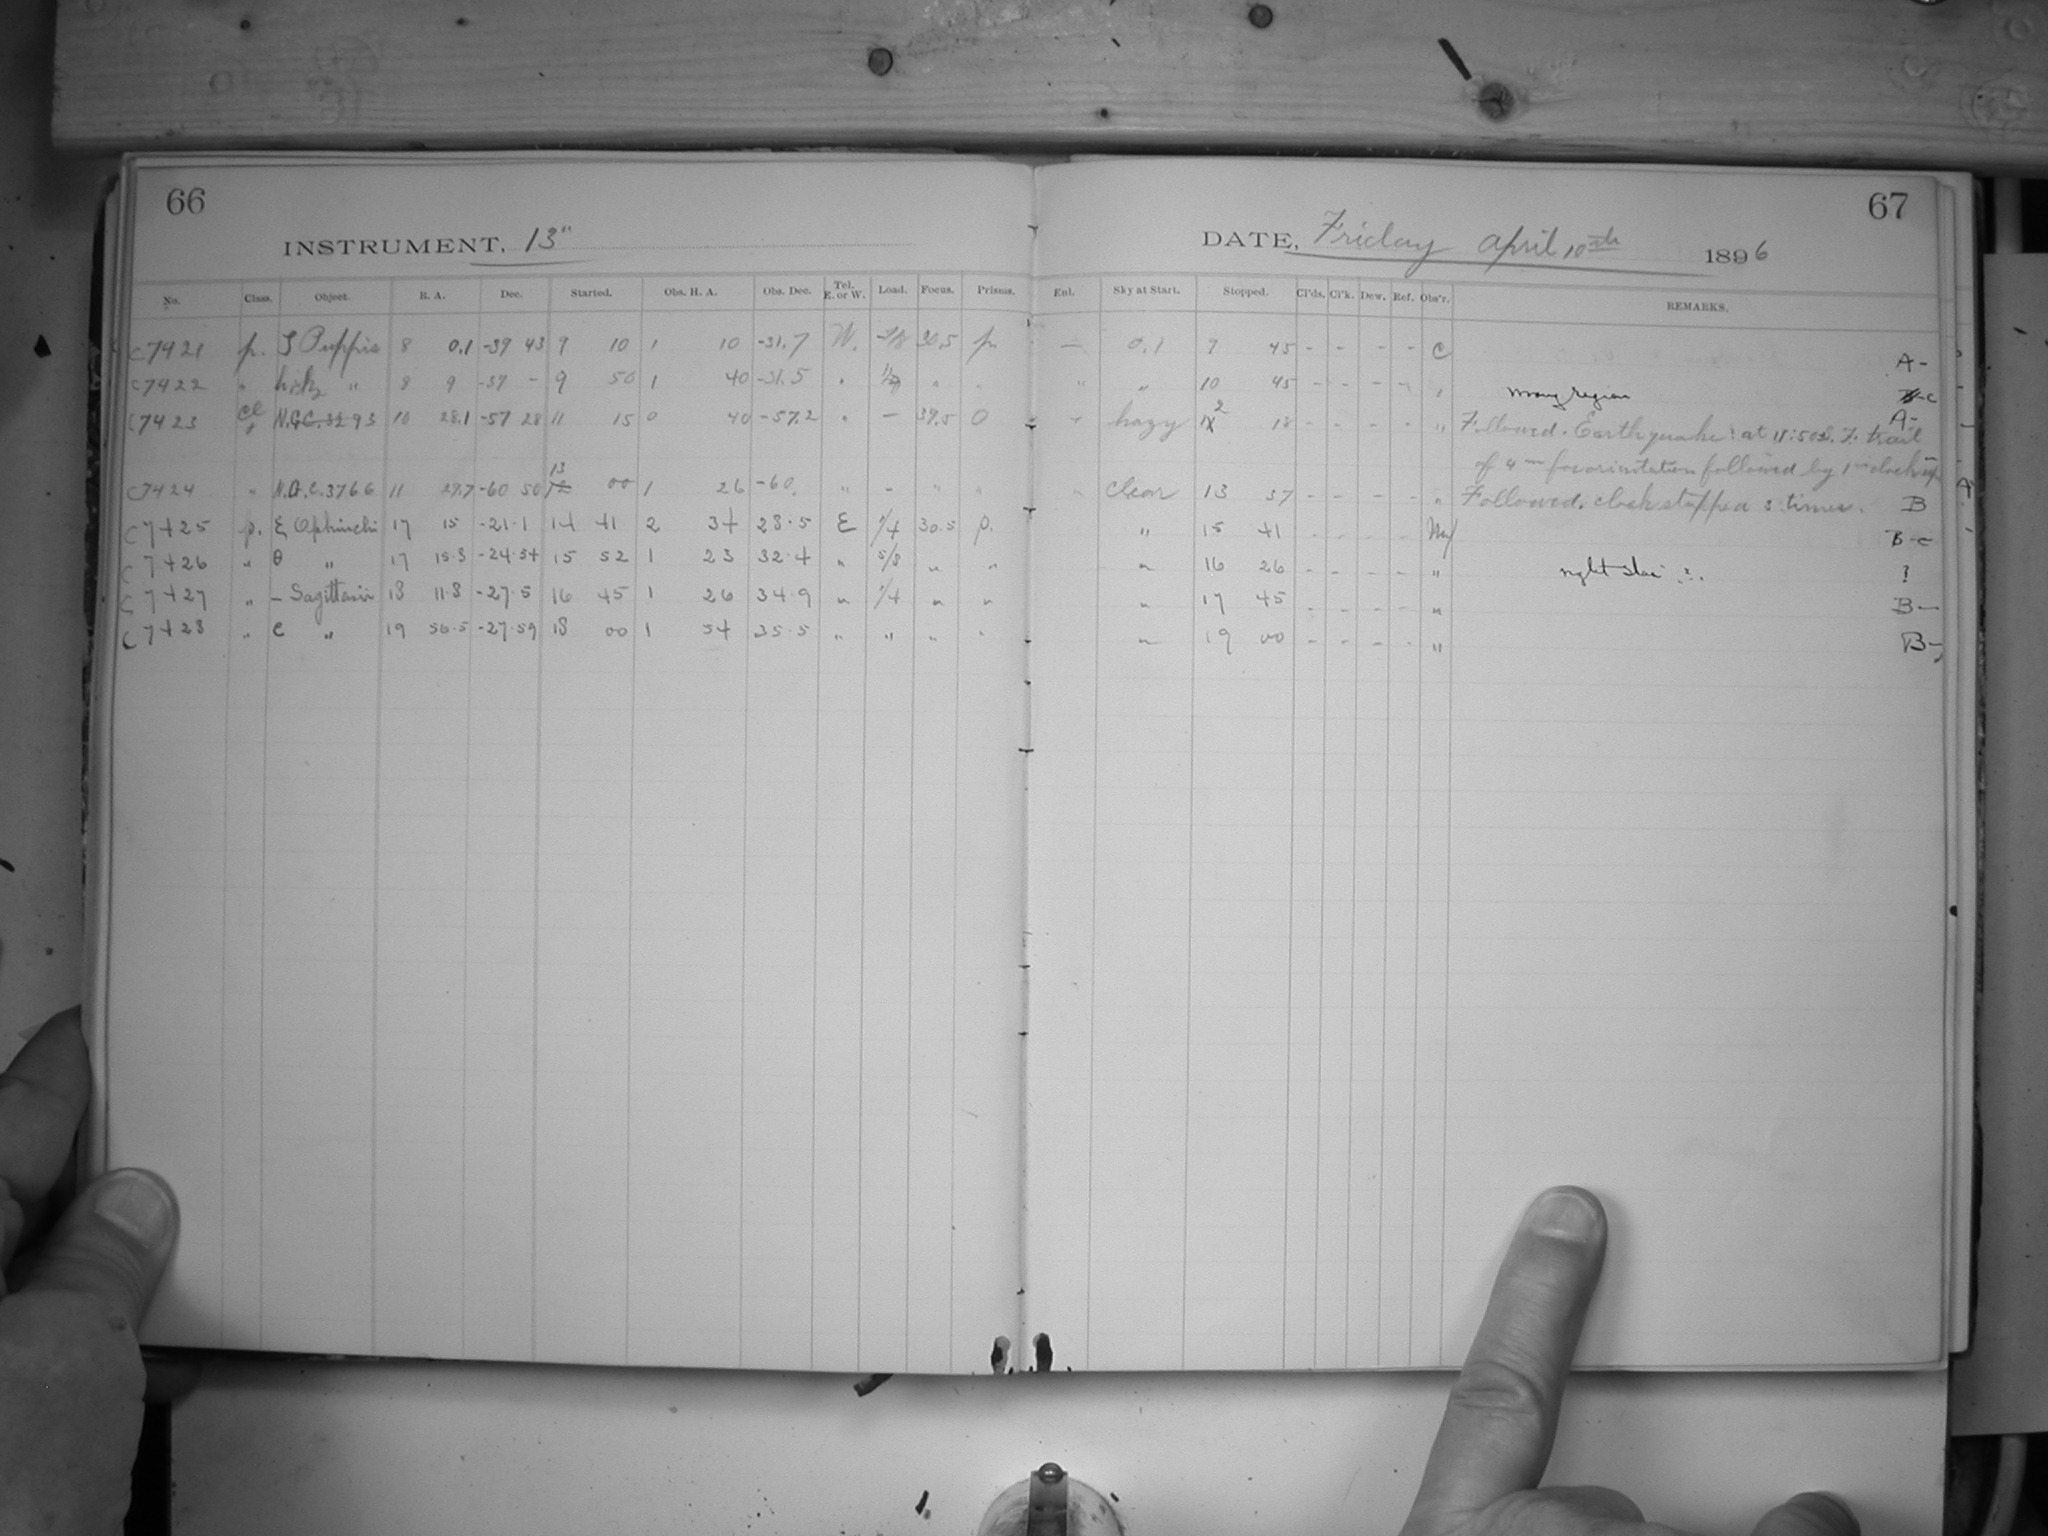 66
INSTRUMENT, 13"
No. Class. Object. R. A. Dec. Started. Obs. H. A. Obs. Dec. Tel. E. or W. Load. Focus. Prisms.
C7421 p. Puppis 8 0.1 -39 43 9 10 1 10 -31.7 W. 30.5 p
C7422 " " 8 9 -37 - 9 50 1 40 -31.5 " " "
C7423 Cl N.G.C. 3293 10 28.1 -57 28 11 15 0 40 -57.2 " - 39.5 0
C7424 " N.G.C. 3766 11 29.7 -60 50 13 00 1 26 -60. " - " "
C7425 p. ξ Ophiuchi 17 15 -21.1 14 41 2 34 28.5 E 1/4 30.5 p.
C7426 " θ " 17 15.8 -24.54 15 52 1 23 32.4 " 5/8 " "
C7427 " - Sagittarii 18 11.8 -27.5 16 45 1 26 34.9 " 1/4 " "
C7428 " c " 19 56.5 -27.59 18 00 1 54 35.5 " " " "
67
DATE, Friday April 10th 1896
Enl. Sky at Start. Stopped. Cl'ds. Cl'k. Dew. Ref. Obs'r. REMARKS.
- 0.1 9 45 - - - - C A-
" " 10 45 - - - - " wrong region -c
hazy 12 18 - - - - " Followed. Earthquake: at trail A-
of 4m followed by 1m clock
" clear 13 37 - - - - " Followed. clock stopped 3 times. B
" 15 41 - - - - B-c
" 16 26 - - - - " right star ?. ?
" 17 45 - - - - " B-
" 19 00 - - - - " B-